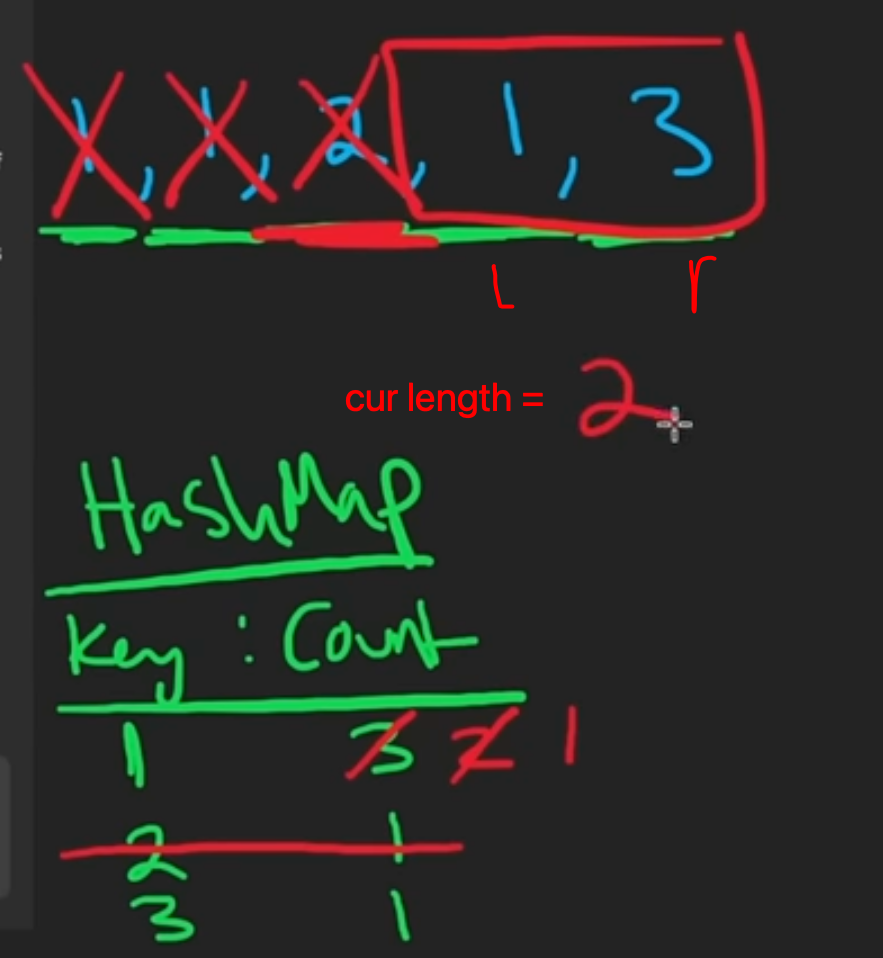 1, 1, 2, 1, 3
L r
cur length = 2
HashMap
Key : Count
1 3 2 1
2 1
3 1